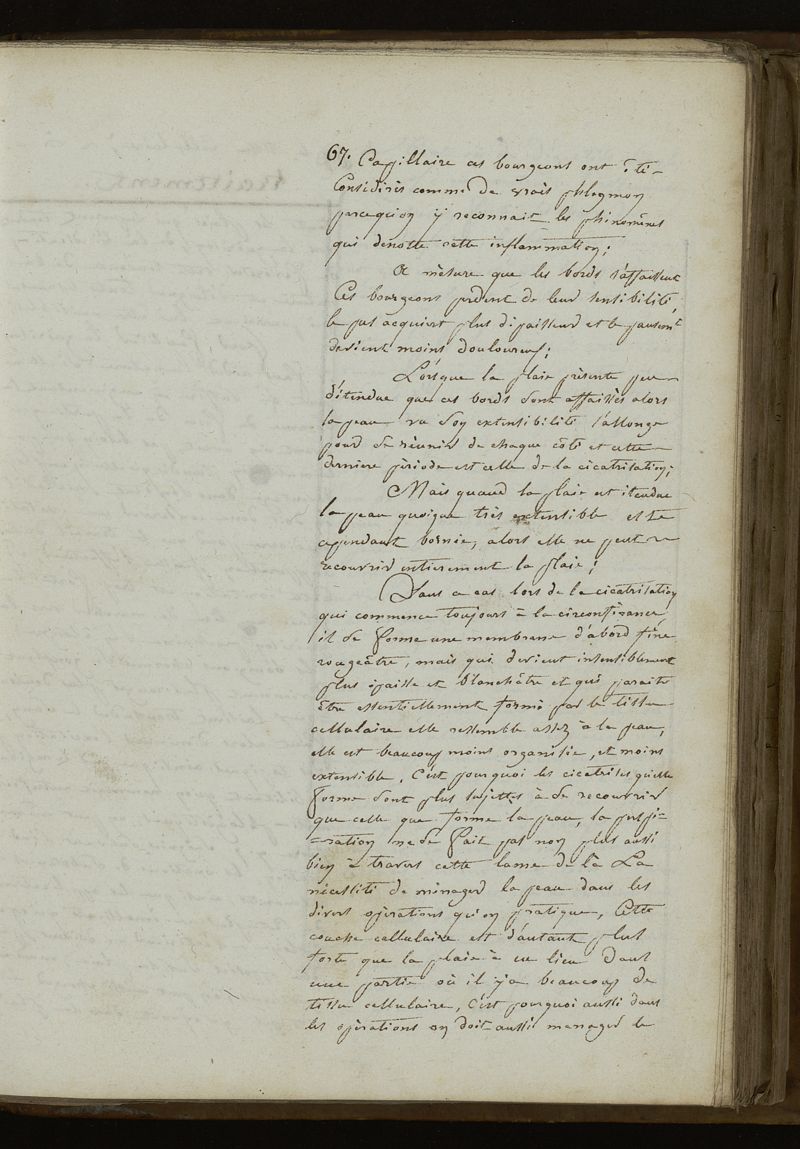 67. Capillaire ces bourgeons ont été
Considérés comme De vrais phlegmon
parcequ'on y reconnait les phénomènes
qui denotte cette inflammation;
A mesure que les bords s'affaissent
Ces bourgeons perdent de leur sensibilité,
le pus acquiert plus d'épaisseur et le pansemt
devient moins douloureux;
Lorsque la plaie présente peu
d'étendue que ces bords sont affaissés alors
la peau vu son extensibilité s'allonge
pour se réunir de chaque côté et cette
derniere période est celle de la cicatrisation;
Mais quand la plaie est étendue
la peau quoique très extensible est
cependant bornée, alors elle ne peut
recouvrir entierement la plaie;
Dans ce cas lors de la cicatrisation
qui commence toujours à la circonférence
il se forme une membrane d'abord fine
rougeâtre, mais qui devient insensiblement
plus épaisse et blanchâtre et qui parait
être essentiellement formé par le tissu
cellulaire elle ressemble assez à la peau,
elle est beaucoup moins organisée, et moins
extensible, C'est pourquoi les cicatrises qu'elle
forme sont plus sujettes à se recouvrir
que celle que forme la peau, la perspi=
=ration ne se fait pas non plus aussi
bien à travers cette lame de là La
nécessité de ménager la peau dans les
divers opérations qu'on pratique, Cette
couche cellulaire est d'autant plus
forte que la plaie à eu lieu Dans
une partie où il y a beaucoup de
tissu cellulaire, C'est pourquoi aussi dans
les opérations on doit aussi menager le